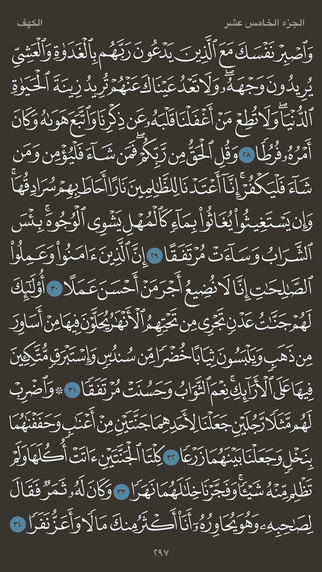 الجزء الخامس عشر
الكهف
وَٱصْبِرْ نَفْسَكَ مَعَ ٱلَّذِينَ يَدْعُونَ رَبَّهُم بِٱلْغَدَوٰةِ وَٱلْعَشِىِّ
يُرِيدُونَ وَجْهَهُۥ ۖ وَلَا تَعْدُ عَيْنَاكَ عَنْهُمْ تُرِيدُ زِينَةَ ٱلْحَيَوٰةِ
ٱلدُّنْيَا ۖ وَلَا تُطِعْ مَنْ أَغْفَلْنَا قَلْبَهُۥ عَن ذِكْرِنَا وَٱتَّبَعَ هَوَىٰهُ وَكَانَ
أَمْرُهُۥ فُرُطًا ٢٨ وَقُلِ ٱلْحَقُّ مِن رَّبِّكُمْ ۖ فَمَن شَآءَ فَلْيُؤْمِن وَمَن
شَآءَ فَلْيَكْفُرْ ۚ إِنَّآ أَعْتَدْنَا لِلظَّٰلِمِينَ نَارًا أَحَاطَ بِهِمْ سُرَادِقُهَا ۚ
وَإِن يَسْتَغِيثُوا۟ يُغَاثُوا۟ بِمَآءٍ كَٱلْمُهْلِ يَشْوِى ٱلْوُجُوهَ ۚ بِئْسَ
ٱلشَّرَابُ وَسَآءَتْ مُرْتَفَقًا ٢٩ إِنَّ ٱلَّذِينَ ءَامَنُوا۟ وَعَمِلُوا۟
ٱلصَّٰلِحَٰتِ إِنَّا لَا نُضِيعُ أَجْرَ مَنْ أَحْسَنَ عَمَلًا ٣٠ أُو۟لَٰٓئِكَ
لَهُمْ جَنَّٰتُ عَدْنٍ تَجْرِى مِن تَحْتِهِمُ ٱلْأَنْهَٰرُ يُحَلَّوْنَ فِيهَا مِنْ أَسَاوِرَ
مِن ذَهَبٍ وَيَلْبَسُونَ ثِيَابًا خُضْرًا مِّن سُندُسٍ وَإِسْتَبْرَقٍ مُّتَّكِـِٔينَ
فِيهَا عَلَى ٱلْأَرَآئِكِ ۚ نِعْمَ ٱلثَّوَابُ وَحَسُنَتْ مُرْتَفَقًا ٣١ ۞ وَٱضْرِبْ
لَهُم مَّثَلًا رَّجُلَيْنِ جَعَلْنَا لِأَحَدِهِمَا جَنَّتَيْنِ مِنْ أَعْنَٰبٍ وَحَفَفْنَٰهُمَا
بِنَخْلٍ وَجَعَلْنَا بَيْنَهُمَا زَرْعًا ٣٢ كِلْتَا ٱلْجَنَّتَيْنِ ءَاتَتْ أُكُلَهَا وَلَمْ
تَظْلِم مِّنْهُ شَيْـًٔا ۚ وَفَجَّرْنَا خِلَٰلَهُمَا نَهَرًا ٣٣ وَكَانَ لَهُۥ ثَمَرٌ فَقَالَ
لِصَٰحِبِهِۦ وَهُوَ يُحَاوِرُهُۥٓ أَنَا۠ أَكْثَرُ مِنكَ مَالًا وَأَعَزُّ نَفَرًا ٣٤
٢٩٧